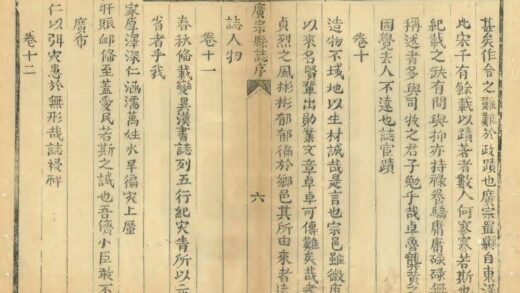 甚矣作令之難難於政蹟也廣宗置縣自東漢
此宋千有餘載以蹟著者數人何寥寥若斯也
紀載之訣有間與抑亦持祿養驕庸庸碌碌無
稱述者多與司牧之君子勉乎哉卓魯龔黃之
固覺去人不遠也誌官蹟
卷十
廣宗縣誌序
六
造物不域地以生材誠哉是言也宗邑雖微
以來名賢輩出勛業文章卓卓可傳難矣哉孝
貞烈之風彬彬郁郁徧於鄉邑其所由來者
誌人物
卷十一
春秋備載變異漢書誌列五行紀災眚所以示
省者乎我
家厚澤深仁涵濡萬姓水旱徧災上廑
肝賬卹備至蓋愛民若斯之誠也吾儕小臣敢不
廣布
仁以弭災患於無形哉誌祲祥
卷十二